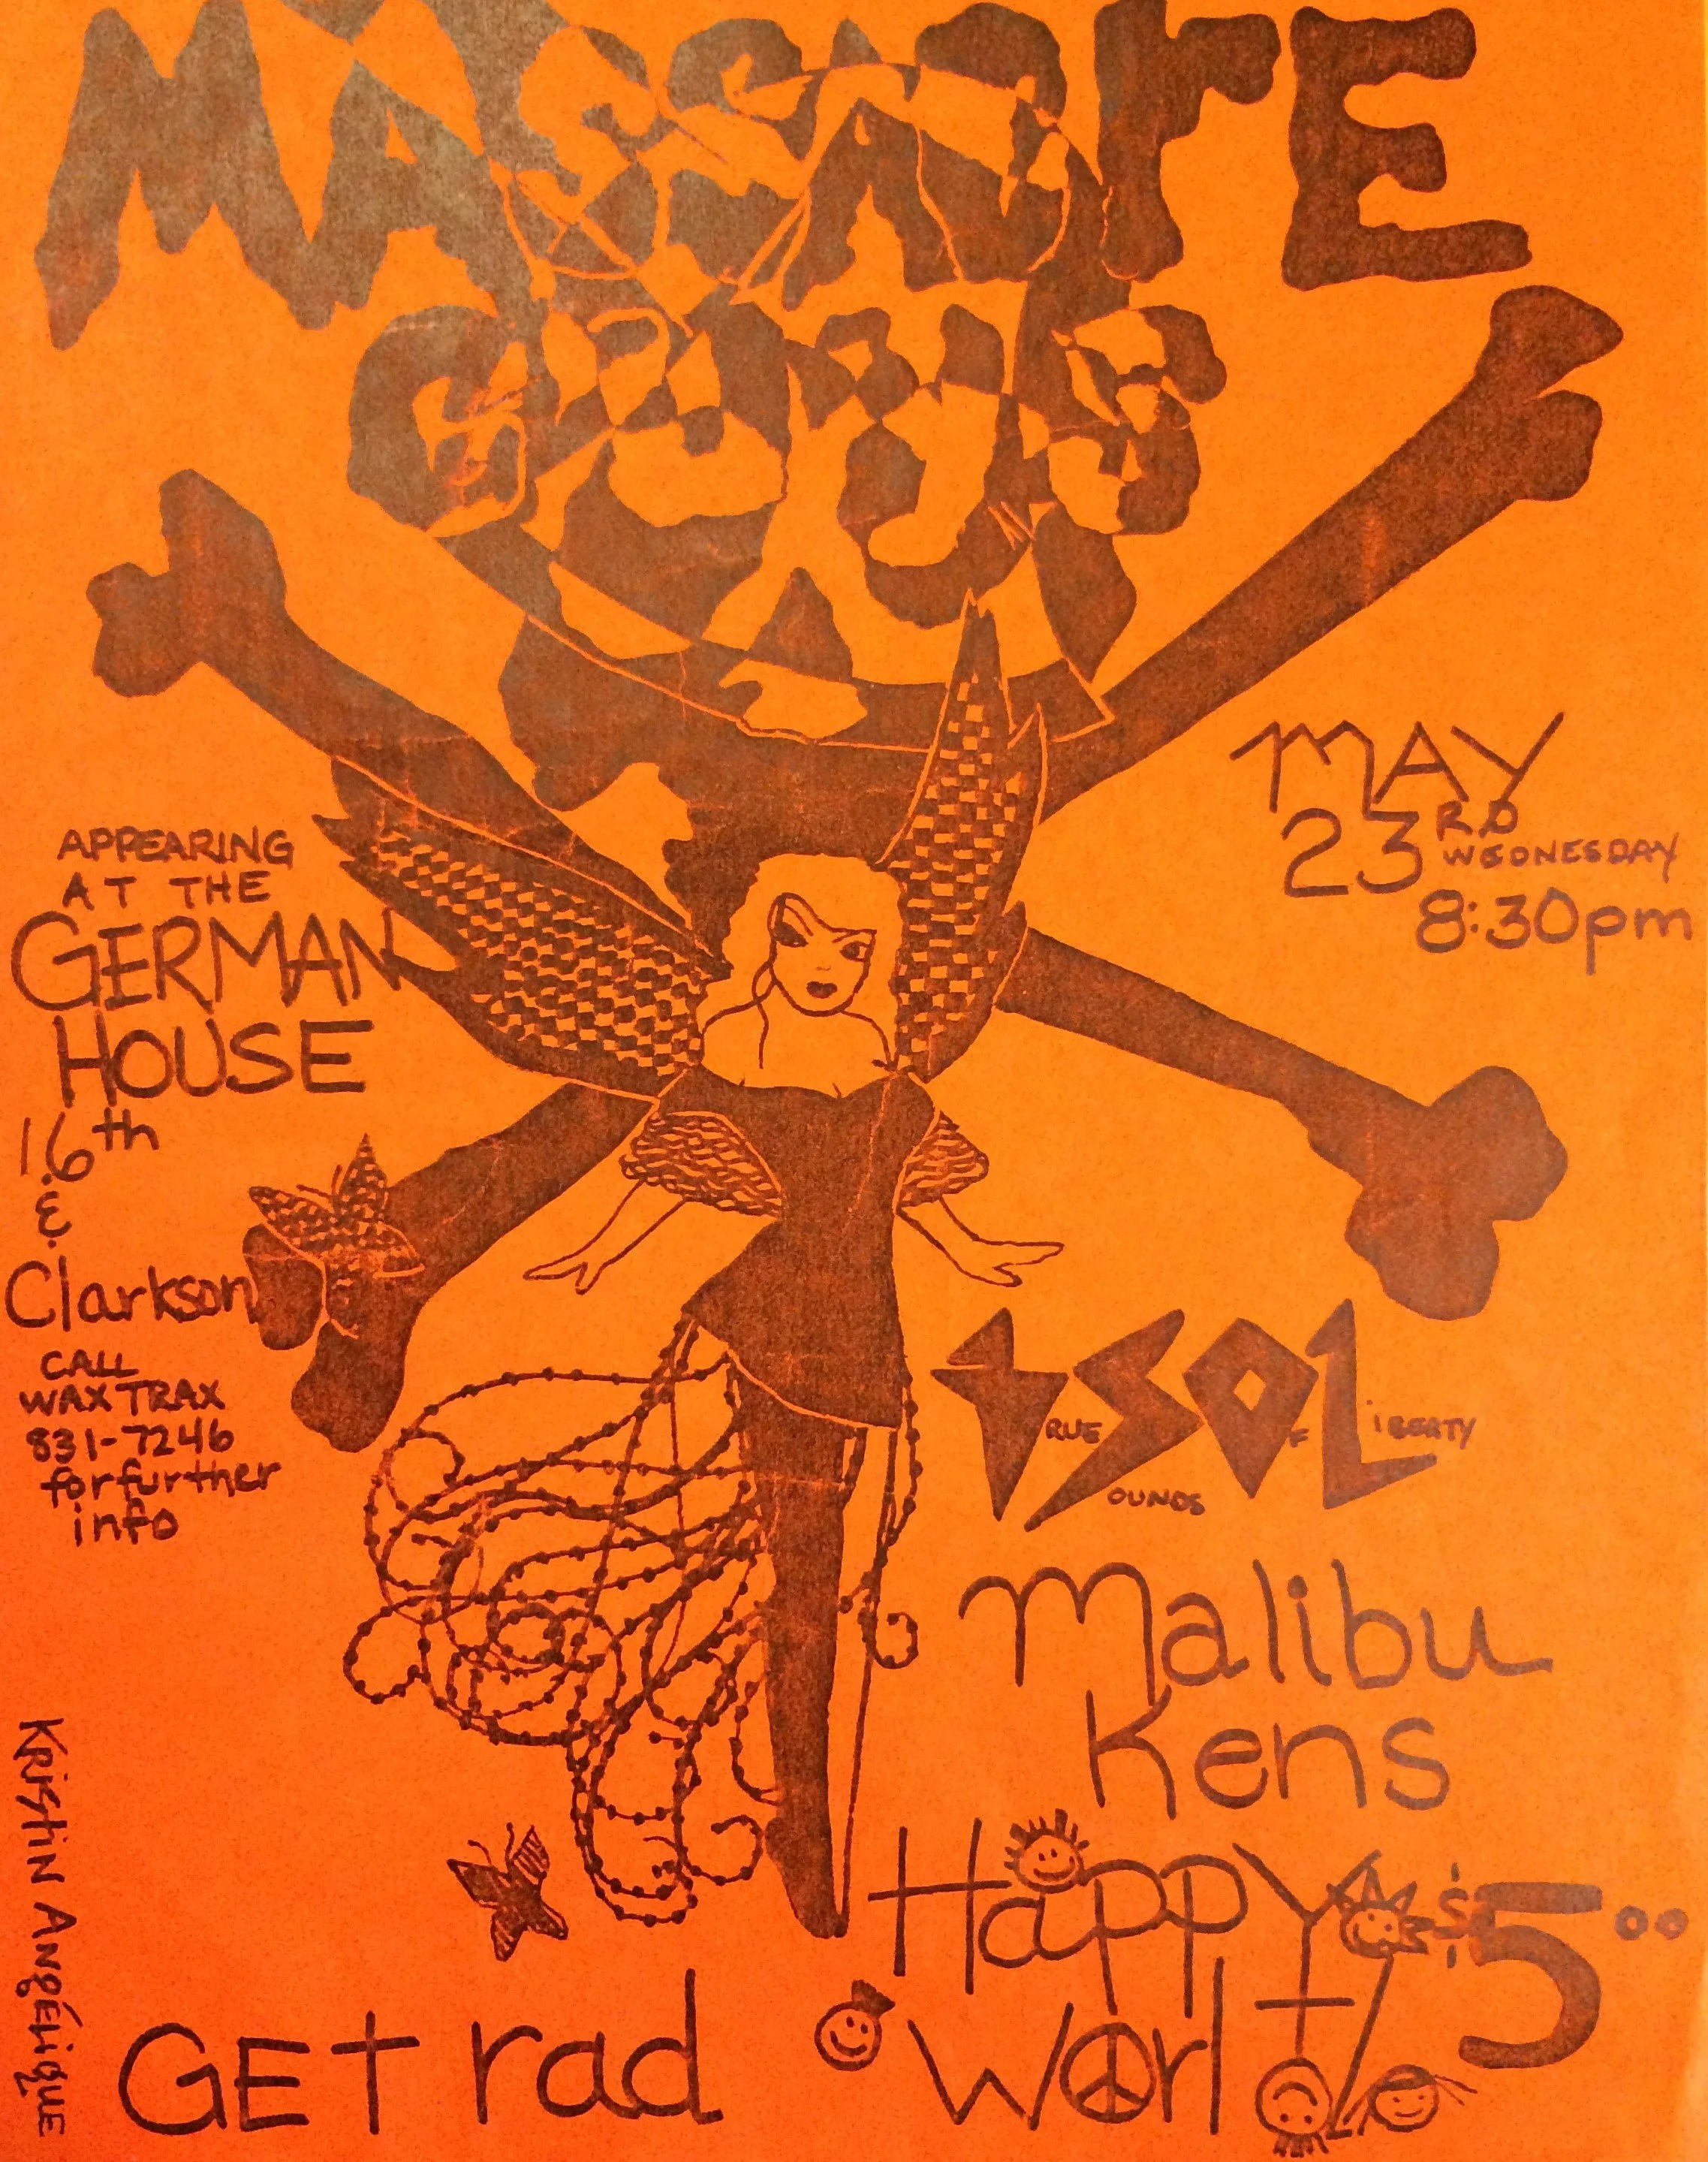 MASSACrE
GUYS
APPEARING
AT THE
GERMAN
HOUSE
16th
&
Clarkson
CALL
WAX TRAX
831-7246
for further
info
MAY
23RD
WEDNESDAY
8:30pm
TSOL
TRUE SOUNDS OF LiBERTY
Malibu
Kens
Happy
World
$5.00
GEt rad
KRiStiN ANgÉLiqUE